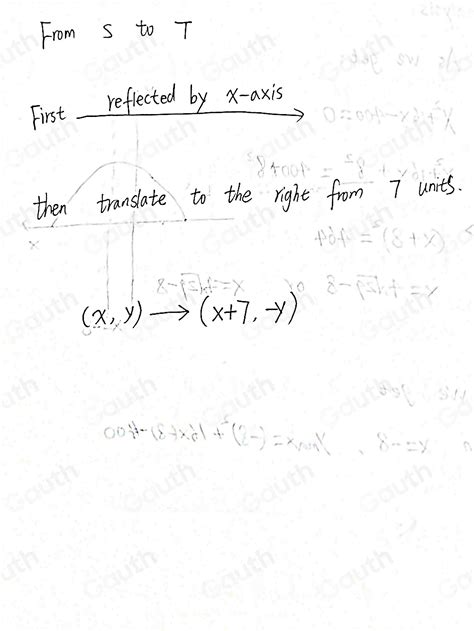 From S to T
First reflected by x-axis
then translate to the right from 7 units.
x
(x, y) → (x+7, -y)